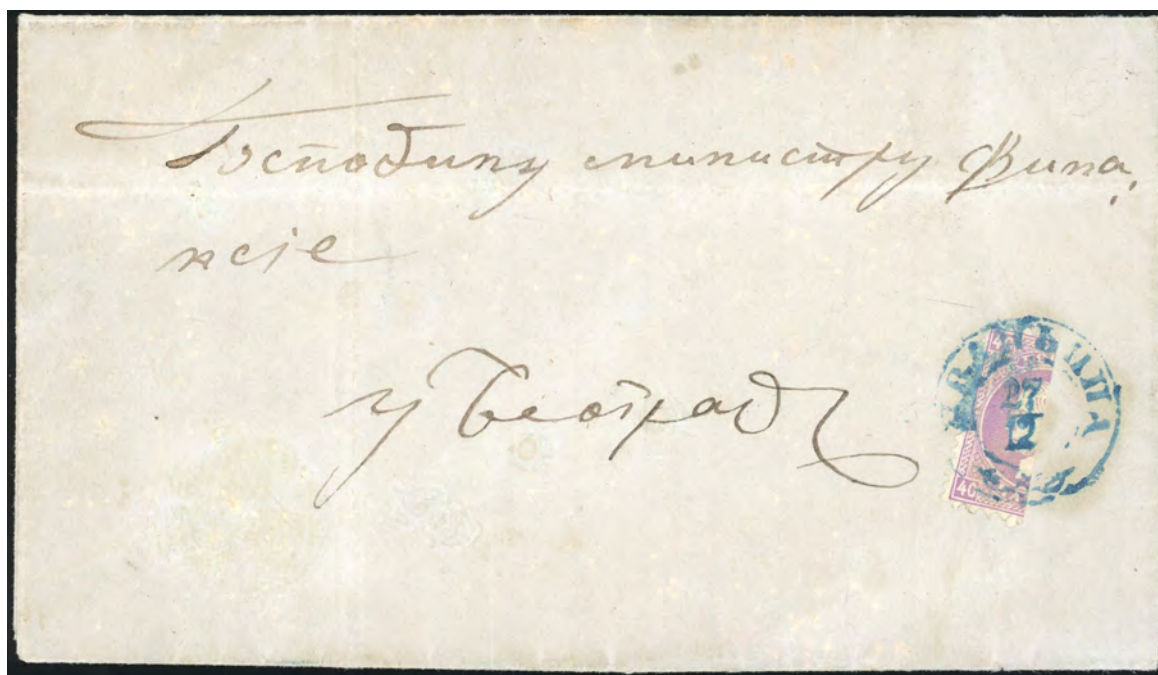 Господину министру Фина,
нсіе
у Београд
40
27
12